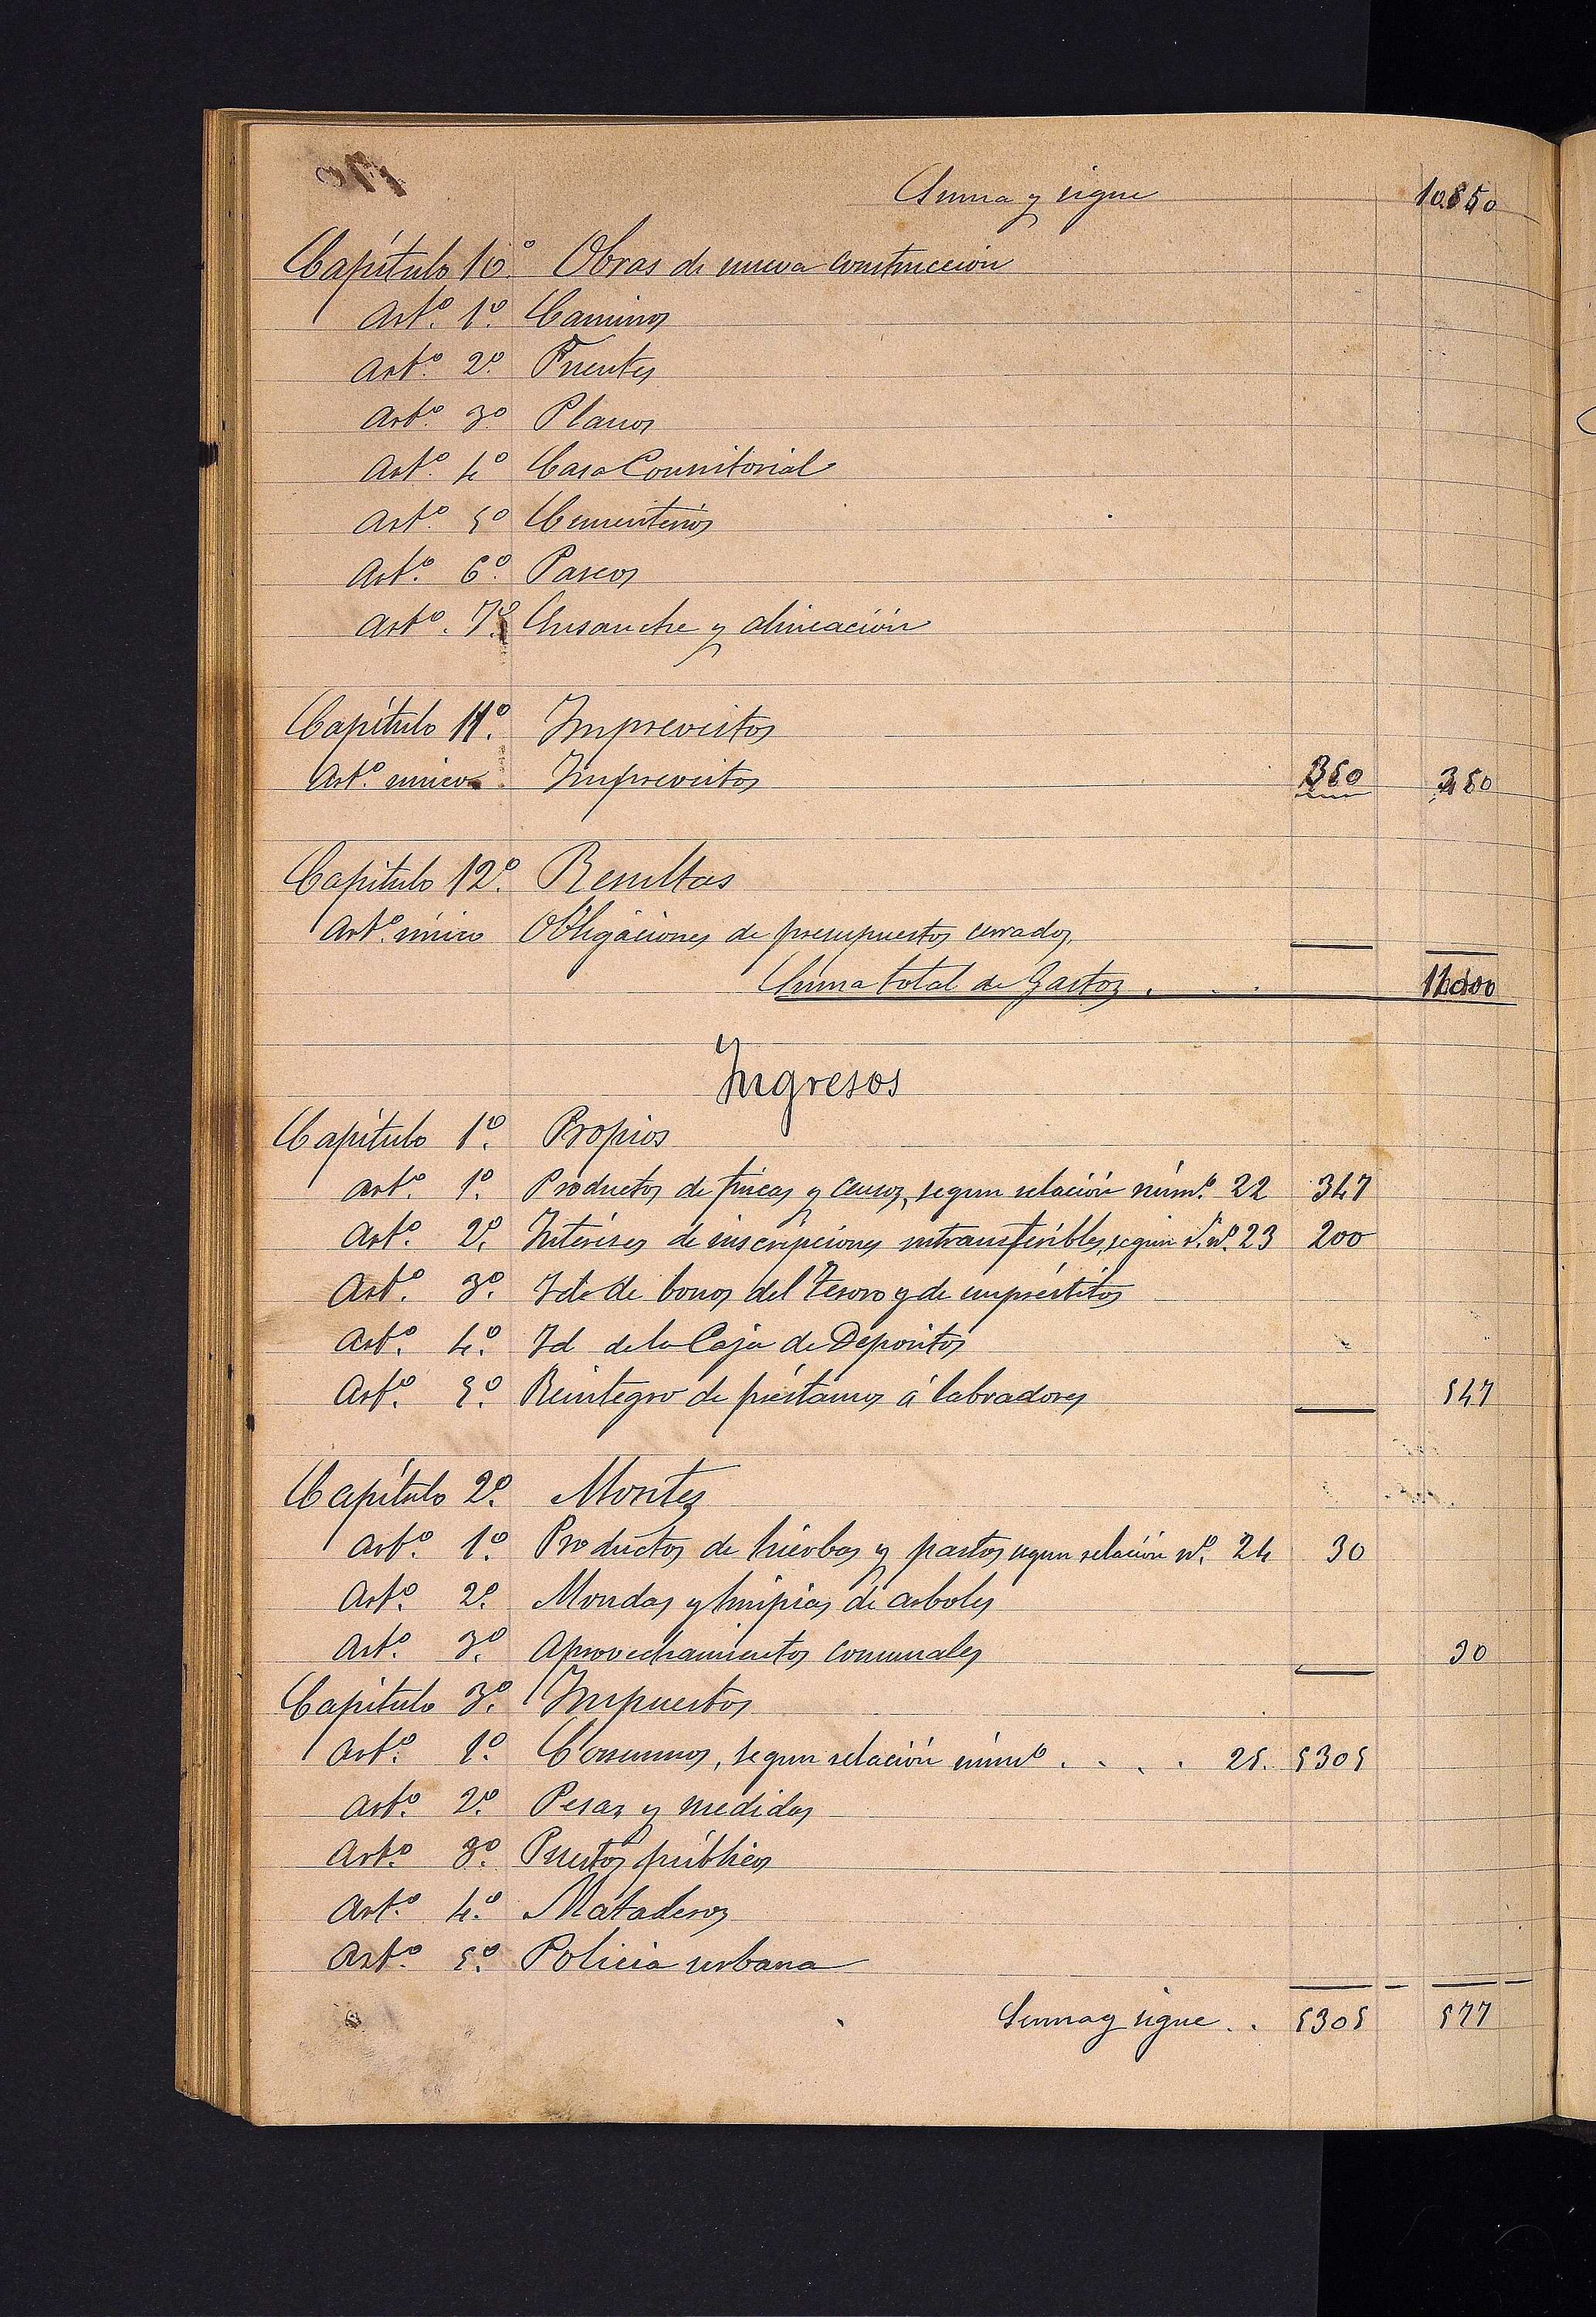 Suma y sigue 10.650
Capítulo 10.º Obras de nueva construccion
Art.º 1.º Caminos
Art.º 2.º Fuentes
Art.º 3.º Planos
Art.º 4.º Casa Consistorial
Art.º 5.º Cementerios
Art.º 6.º Paseos
Art.º 7.º Ensanche y alineación
Capítulo 11.º Imprevistos
Art.º unico Imprevistos 350 350
Capitulo 12.º Resultas
Art.º único Obligaciones de presupuestos cerrados
Suma total de Gastos . . . 11000
Ingresos
Capítulo 1.º Propios
Art.º 1.º Productos de fincas y censos, segun relación núm.º 22 347
Art.º 2.º Intereses de inscripciones intransferibles, segun r. n.º 23 200
Art.º 3.º Id. de bonos del Tesoro y de empréstitos
Art.º 4.º Id de la Caja de Depositos
Art.º 5.º Reintegro de préstamos á labradores 547
Capítulo 2.º Montes
Art.º 1.º Productos de hierbas y pastos segun relación n.º 24 30
Art.º 2.º Mondas y limpias de arboles
Art.º 3.º Aprovechamientos comunales 30
Capitulo 3.º Impuestos
Art.º 1.º Consumos, segun relación núm.º . . . . 25. 5305
Art.º 2.º Pesas y medidas
Art.º 3.º Puestos públicos
Art.º 4.º Mataderos
Art.º 5.º Policia urbana
Suma y sigue . . 5305 577